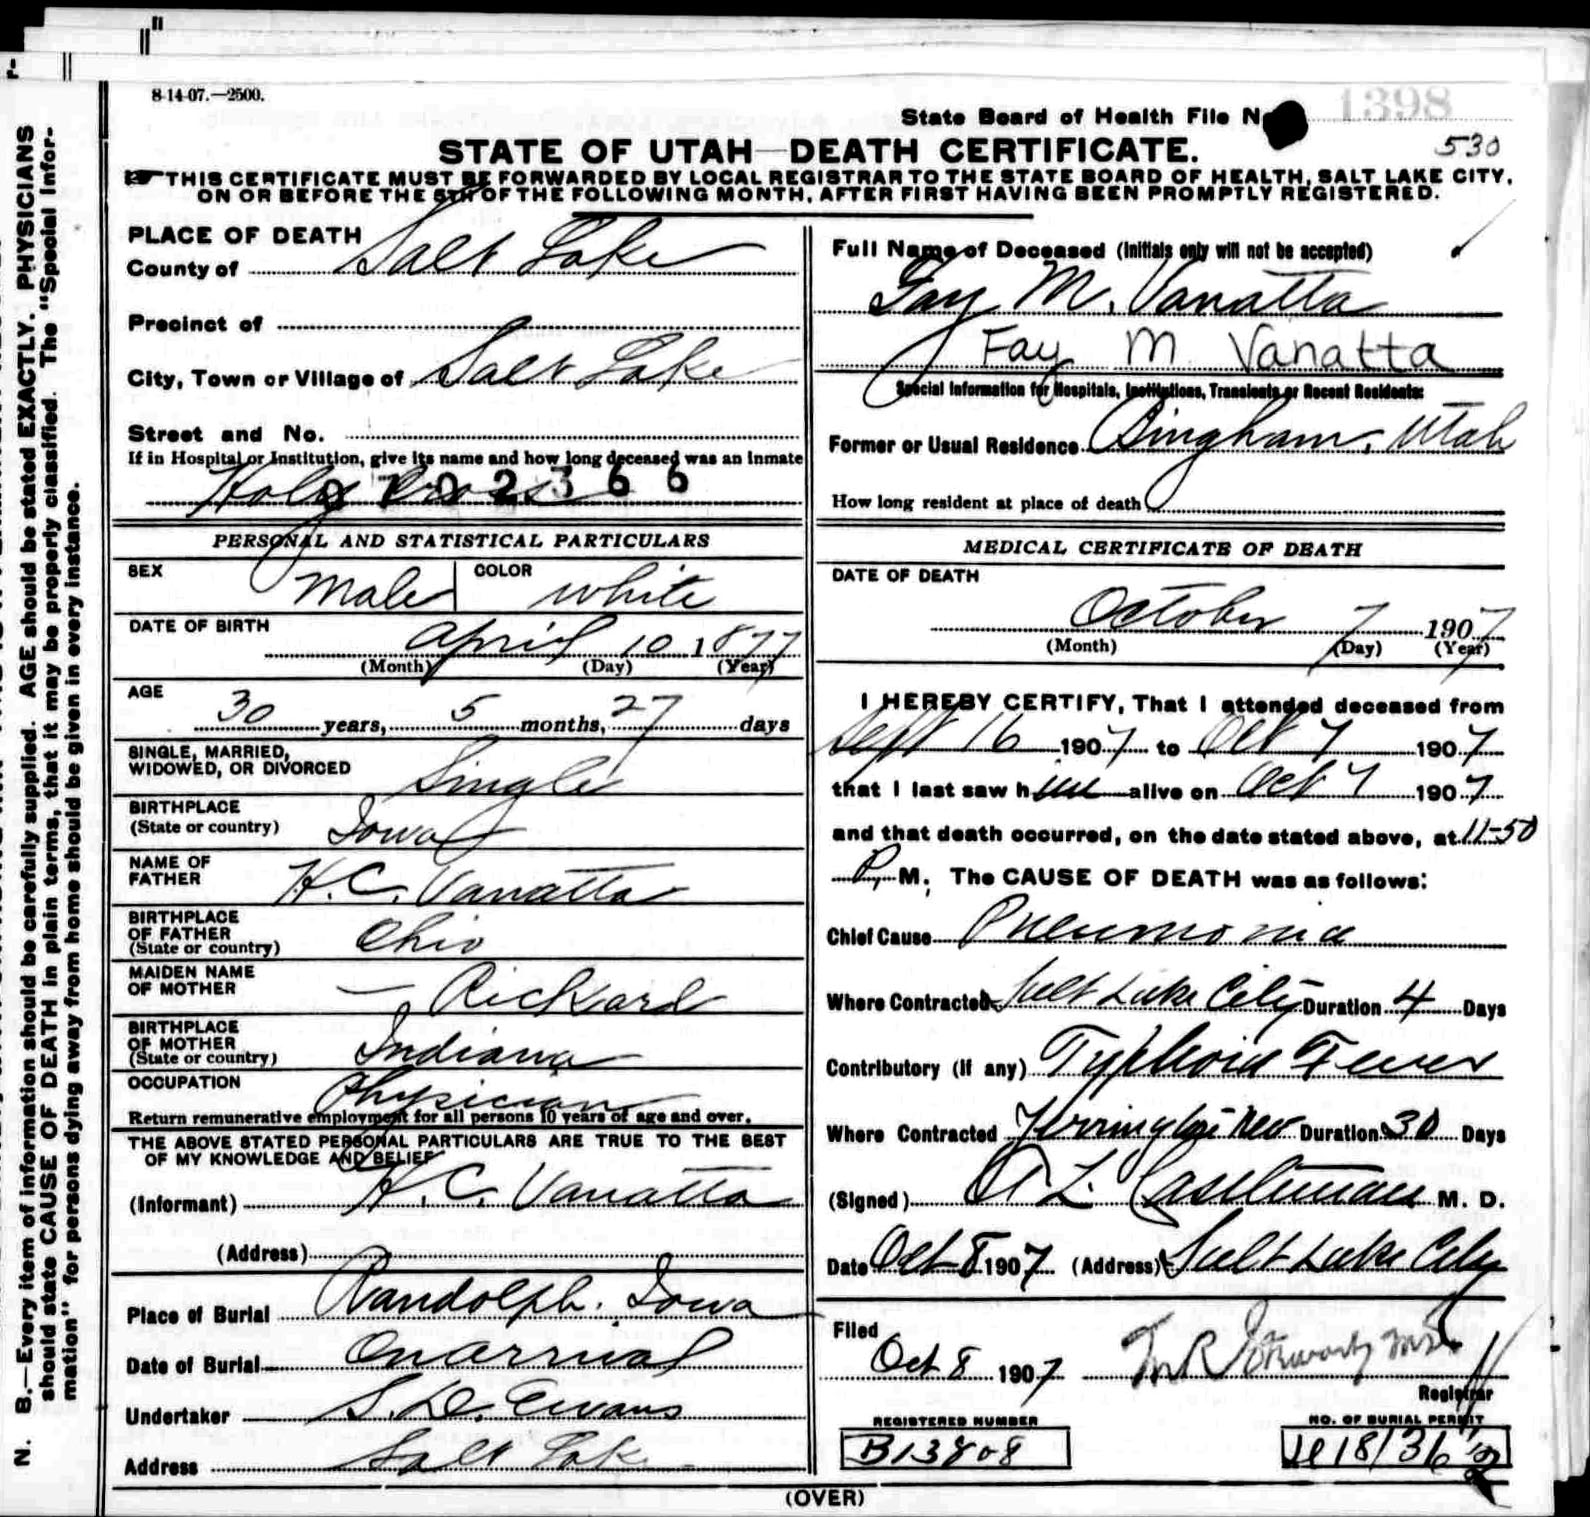 8-14-07.—2500.
1398
State Board of Health File No
530
STATE OF UTAH—DEATH CERTIFICATE.
THIS CERTIFICATE MUST BE FORWARDED BY LOCAL REGISTRAR TO THE STATE BOARD OF HEALTH, SALT LAKE CITY,
ON OR BEFORE THE 5TH OF THE FOLLOWING MONTH, AFTER FIRST HAVING BEEN PROMPTLY REGISTERED.
PLACE OF DEATH
County of Salt Lake
Precinct of
City, Town or Village of Salt Lake
Street and No.
If in Hospital or Institution, give its name and how long deceased was an inmate
Holy Cross
0702366
PERSONAL AND STATISTICAL PARTICULARS
SEX Male COLOR white
DATE OF BIRTH April 10 1877
(Month) (Day) (Year)
AGE
30 years, 5 months, 27 days
SINGLE, MARRIED,
WIDOWED, OR DIVORCED Single
BIRTHPLACE
(State or country) Iowa
NAME OF
FATHER H.C. Vanatta
BIRTHPLACE
OF FATHER
(State or country) Ohio
MAIDEN NAME
OF MOTHER — Rickard
BIRTHPLACE
OF MOTHER
(State or country) Indiana
OCCUPATION Physician
Return remunerative employment for all persons 10 years of age and over.
THE ABOVE STATED PERSONAL PARTICULARS ARE TRUE TO THE BEST
OF MY KNOWLEDGE AND BELIEF
(Informant) H. C. Vanatta
(Address)
Place of Burial Randolph. Iowa
Date of Burial On arrival
Undertaker S. D. Evans
Address Salt Lake
Full Name of Deceased (Initials only will not be accepted)
Fay M. Vanatta
Fay M Vanatta
Special Information for Hospitals, Institutions, Transients or Recent Residents:
Former or Usual Residence Bingham, Utah
How long resident at place of death
MEDICAL CERTIFICATE OF DEATH
DATE OF DEATH
October 7 1907
(Month) (Day) (Year)
I HEREBY CERTIFY, That I attended deceased from
Sept 16 1907 to Oct 7 1907
that I last saw him alive on Oct 7 1907
and that death occurred, on the date stated above, at 11-50
P. M. The CAUSE OF DEATH was as follows:
Chief Cause Pneumonia
Where Contracted Salt Lake City Duration 4 Days
Contributory (if any) Typhoid Fever
Where Contracted Yerrington Nev Duration 30 Days
(Signed) A L Castleman M. D.
Date Oct 8 1907 (Address) Salt Lake City
Filed
Oct 8 1907
Registrar
REGISTERED NUMBER
B13808
NO. OF BURIAL PERMIT
(OVER)
N. B.—Every item of information should be carefully supplied. AGE should be stated EXACTLY. PHYSICIANS
should state CAUSE OF DEATH in plain terms, that it may be properly classified. The "Special Infor-
mation" for persons dying away from home should be given in every instance.